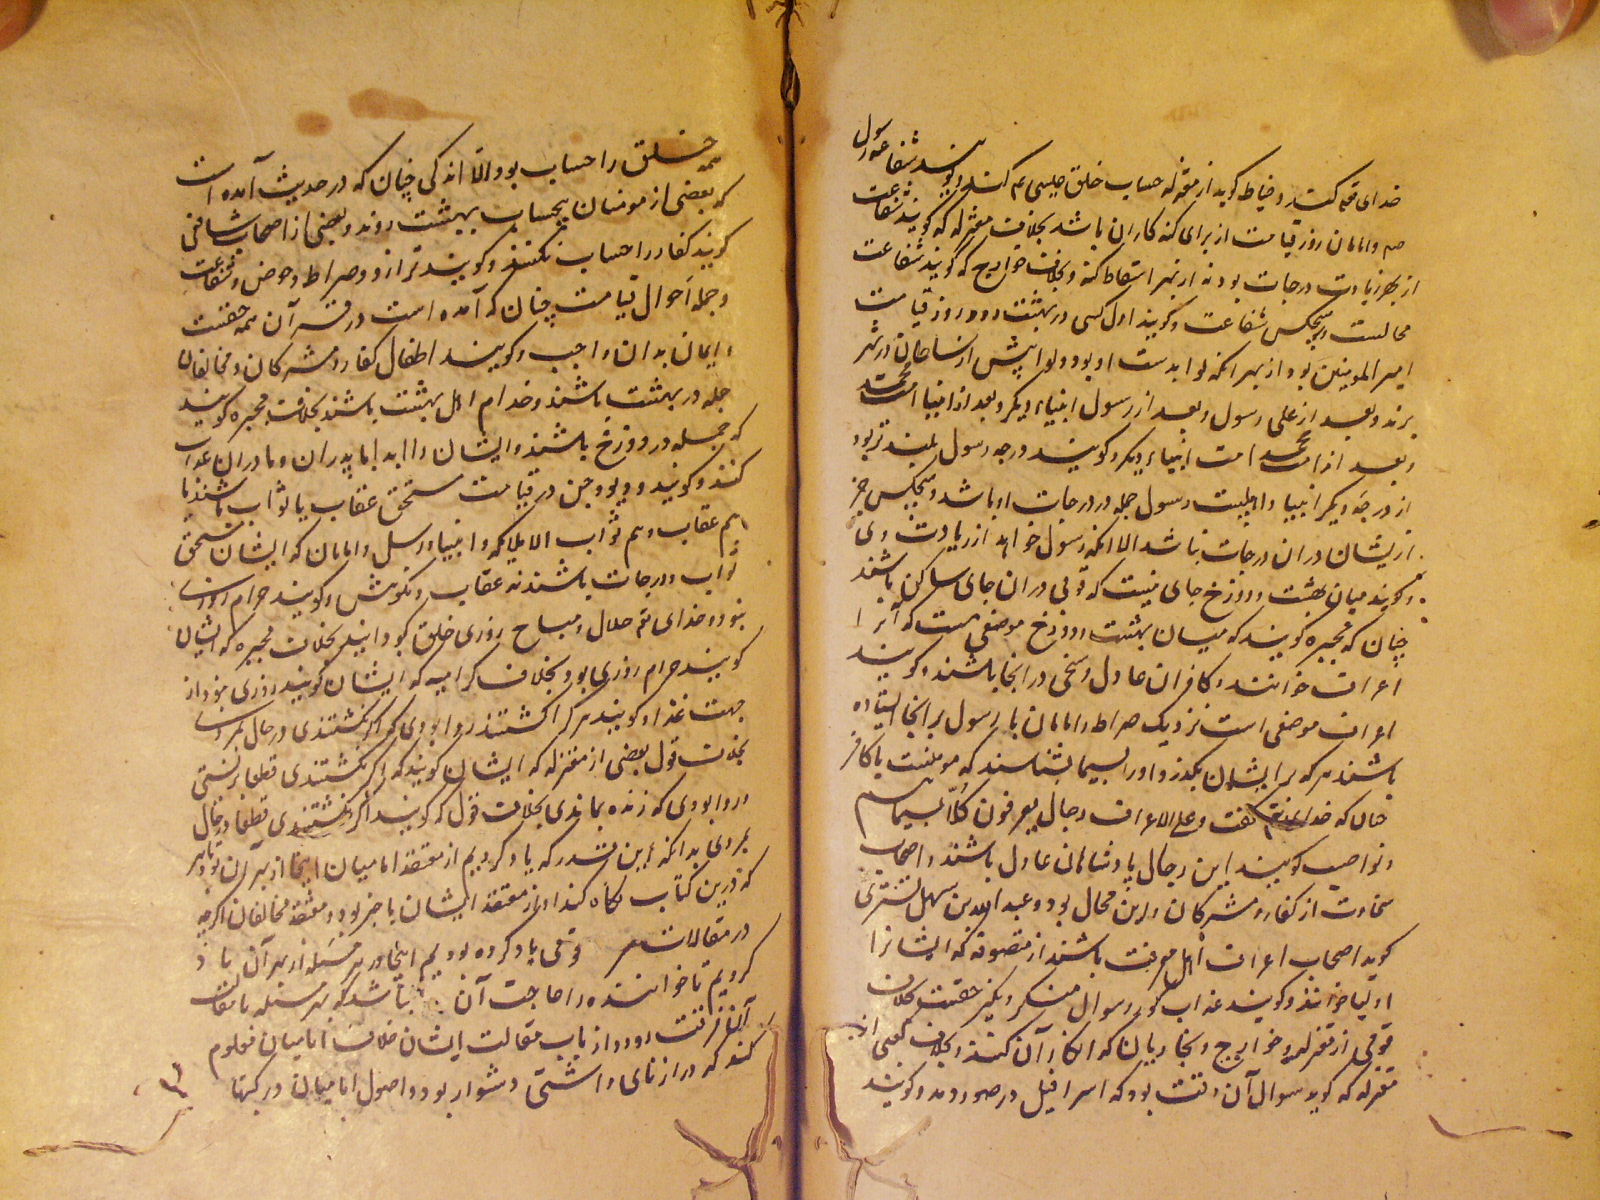 خدای تع کند و خیاط گوید از معتزله حساب خلق عیسی عم کند و گویند شفاعت رسول
صم و امامان روز قیامت از برای گنه کاران باشد بخلاف معتزله که گویند شفاعت
از بهر زیادت درجات بود نه از بهر اسقاط گنه و بخلاف خوارج که گویند شفاعت
محالست و هیچکس شفاعت و گویند اول کسی در بهشت رود روز قیامت
امیر المومنین بود از بهر آنکه لوا بدست او بود و لوا پیش
برند و بعد از علی رسول و بعد از رسول انبیاء دیگر و بعد از انبیا امت محمد
و بعد از امت محمد امت انبیاء دیگر و گویند درجه رسول بلند تر بود
از درجه دیگر انبیا و اهلبیت رسول جمله در درجات او باشد و هیچکس جز
از ایشان در ان درجات نباشد الا انکه رسول خواهد از زیادت وی
و گویند میان بهشت و دوزخ جای نیست که قومی در ان جای ساکن باشند
چنان که مجبره گویند که میان بهشت و دوزخ موضعی هست که آنرا
اعراف خوانند و کافران عادل و سخی در انجا باشند و گویند
اعراف موضعی است نزدیک صراط و امامان با رسول بر انجا ایستاده
باشند هر که بر ایشان بگذرد او را بسیما بشناسند که مومنست یا کافر
چنان که خدای تع گفت و علی الاعراف رجال یعرفون کلا بسیماهم
و نواصب گویند این رجال پادشاهان عادل باشند و اصحاب
سخاوت از کفار و مشرکان و این محال بود و عبد الله بن سهل تستری
گوید اصحاب اعراف اهل معرفت باشند از متصوفه که ایشانرا
اولیا خوانند و گویند عذاب گور و سوال منکر و نکیر حقست و بخلاف
قومی از معتزله و خوارج و نجاریان که انکار آن کنند و بخلاف بعضی از
معتزله که گوید سوال آن وقت بود که اسرافیل در صور دمد و گویند
همه خلق را حساب بود الا اندکی چنان که در حدیث آمده است
که بعضی از مومنان بیحساب بهبشت روند و بعضی از اصحاب شافعی
گویند کفار را حساب نکنند و گویند ترازو و صراط و حوض و شفاعت
و جمله احوال قیامت چنان که آمده است در قرآن همه حقست
و ایمان بدان واجب و گویند اطفال کفار و مشرکان و مخالفان
جمله در بهشت باشند و خدام اهل بهشت باشند بخلاف مجبره گویند
که جمله در دوزخ باشند و ایشان را ابدا با پدران و مادران عذاب
کنند و گویند دیو و جن در قیامت مستحق عقاب یا ثواب باشند یا
هم عقاب و هم ثواب الا ملایکه و انبیا و رسل و امامان که ایشان مستحق
ثواب و درجات باشند نه عقاب و نکوهش و گویند حرام روزی
نبود و خدای تع حلال و مباح روزی خلق گرداند بخلاف مجبره که ایشان
گویند حرام روزی بود و بخلاف کرامیه که ایشان گویند روزی بود از
جهت غذا و گویند هر که را کشتند روا بودی که اگر نکشتندی در حال بمردی
بخلاف قول بعضی از معتزله که ایشان گویند که اگر نکشتندی قطعا بزیستی
و روا بودی که زنده بماندی بخلاف قول که گویند اگر نکشتندی قطعا در حال
بمردی بدانکه این قدر که یاد کردیم از معتقد امامیان اینجا از بهر آن بود تا هر
که درین کتاب نگاه کند او از معتقد ایشان با خبر بود و معتقد مخالفان اگرچه
در مقالات هر قومی یاد کرده بودیم اینجا در هر مسئله از بهر آن یاد
کردیم تا خواننده را حاجت آن نباشد که بهر مسئله با مقالت
آن فرقت رود و از باب مقالت ایشان خلاف امامیان معلوم
کند که درازنای داشتی و دشوار بود و اصول امامیان در کتبها